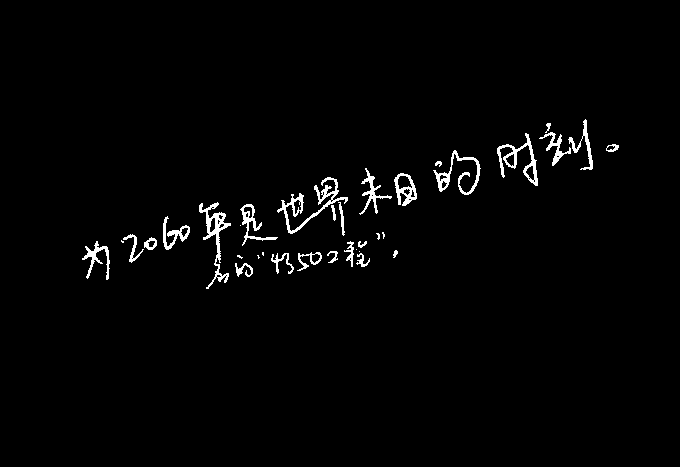 为2060年是世界末日的时刻。
名的“4350工程”，